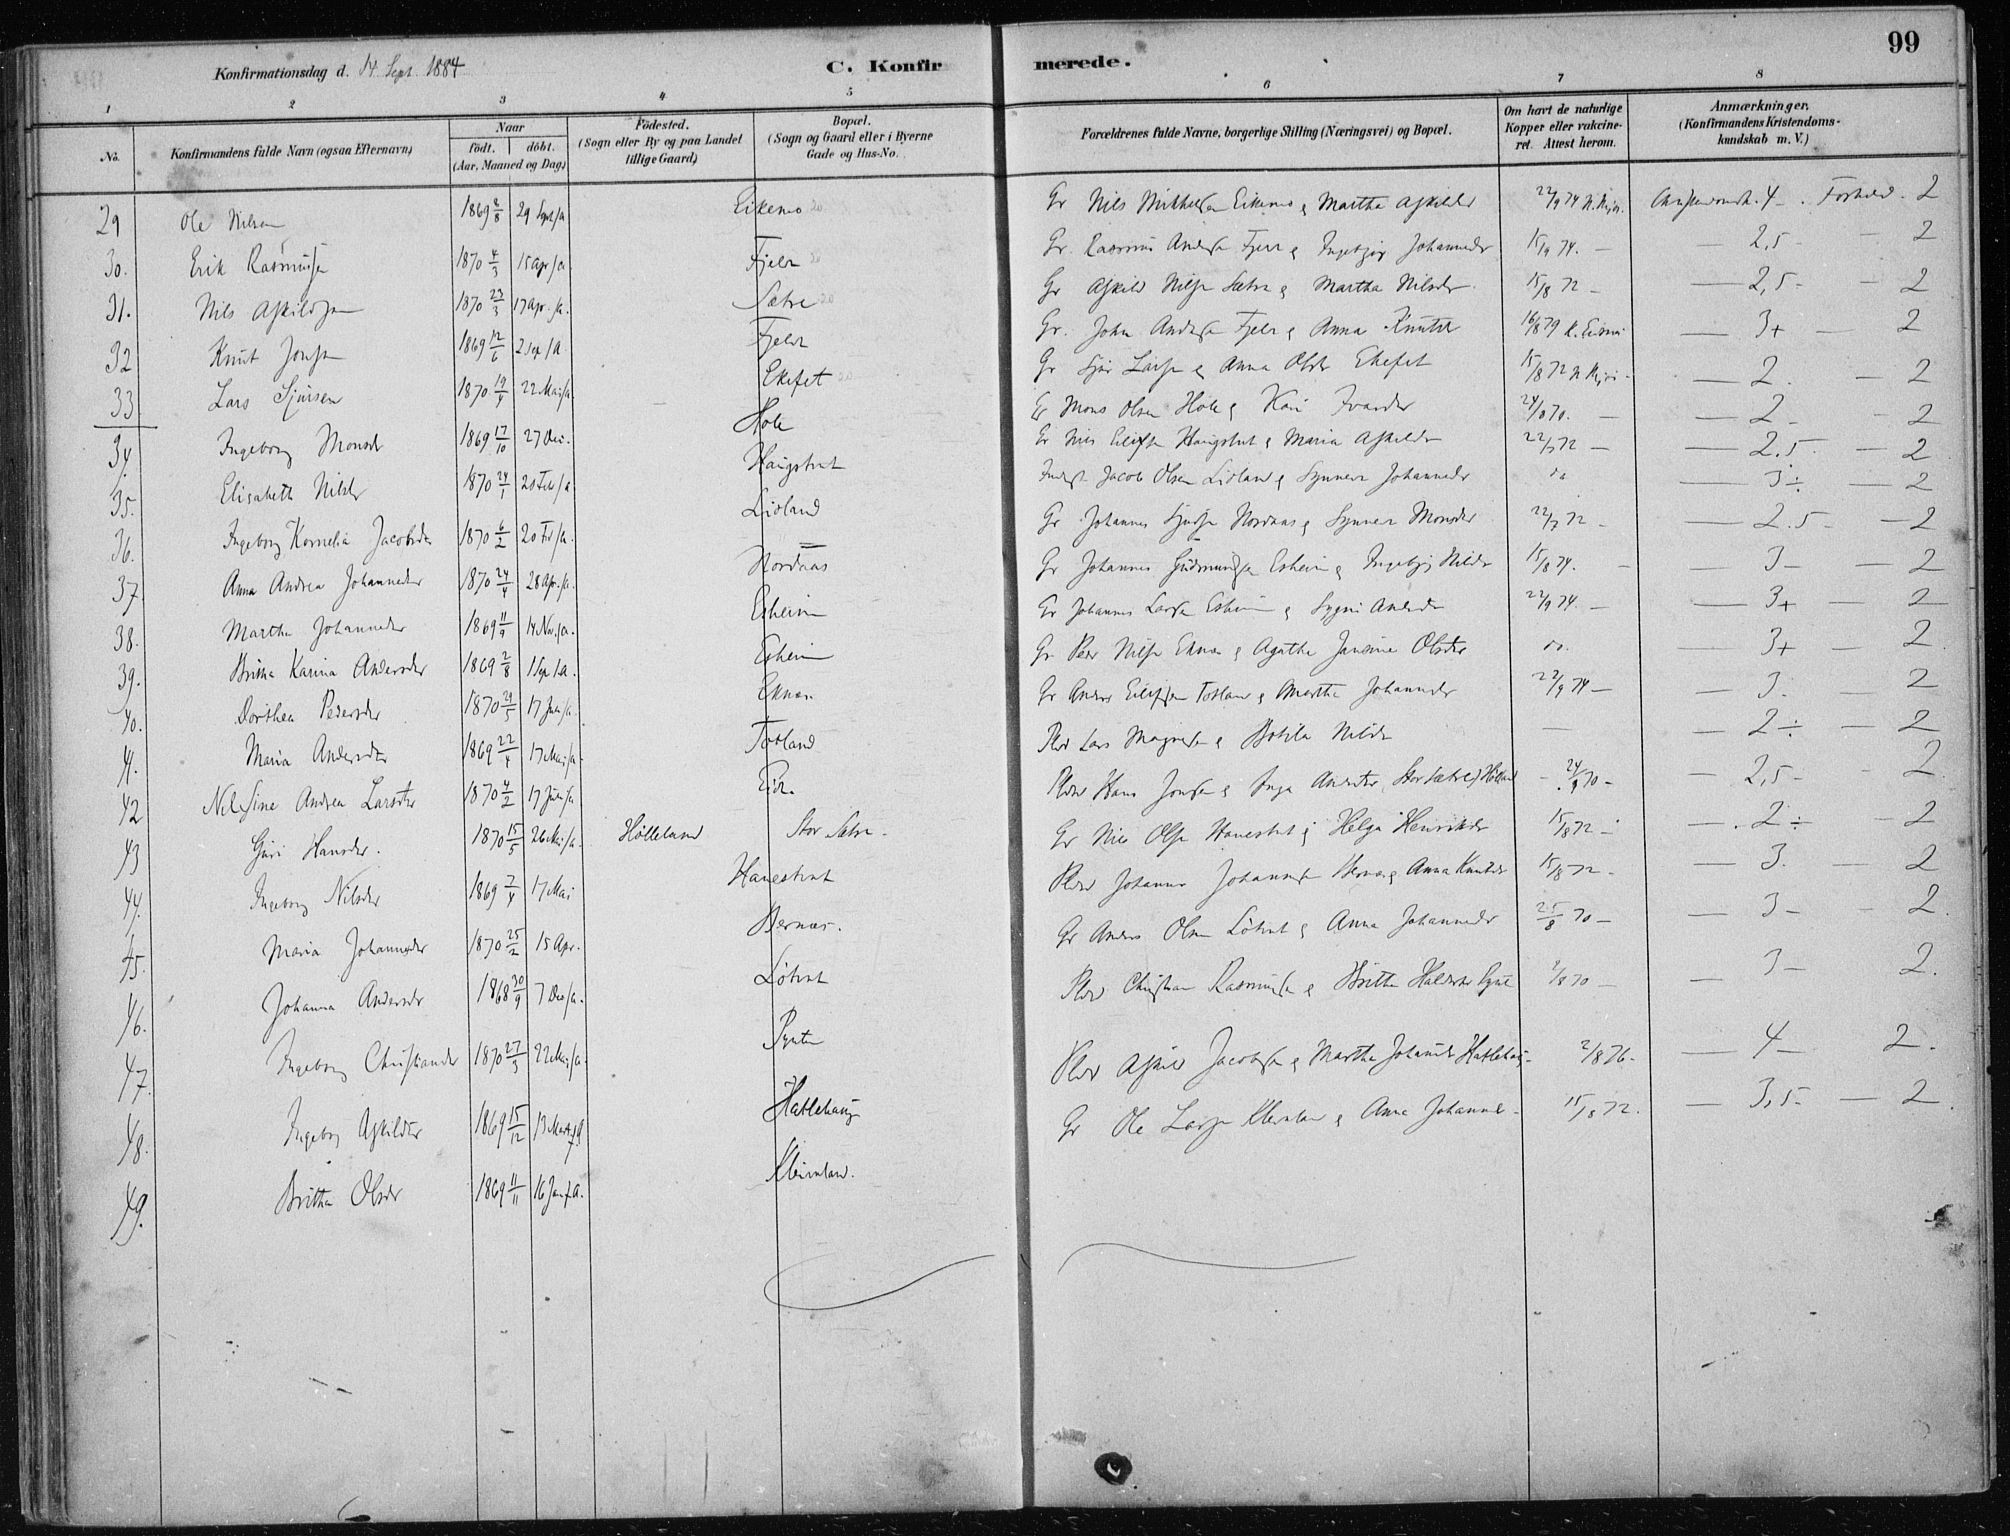 99
Konfirmationsdag d. 14. Sept. 1884
C. Konfirmerede.
1 2 3 4 5 6 7 8
No.
Konfirmandens fulde Navn (ogsaa Efternavn)
Naar
födt. döbt.
(Aar, Maaned og Dag)
Födested.
(Sogn eller By og paa Landet tillige Gaard)
Bopæl.
(Sogn og Gaard eller i Byerne Gade og Hus-No.
Forældrenes fulde Navne, borgerlige Stilling (Næringsvei) og Bopæl.
Om havt de naturlige Kopper eller vakcineret. Attest herom.
Anmærkninger.
(Konfirmandens Kristendomskundskab m. V.)
29 Ole Nilsen 1869 2/8 29 Sept/a Eikemo Gr Nils Mikkelsen Eikemo & Martha Askildsdr 22/9 74 4 Forhold 2
30. Erik Rasmussen 1870 4/3 15 Apr/a Fjeld Gr. Rasmus Anders Fjeld & Ingebjør Johannesdr 15/9 74. — 2,5 — 2
31. Nils Askildsen 1870 23/3 17 Apr./a. Sætre Gr Askild Nilsen Sætre & Martha Nilsdr 15/8 72 — 2,5 — 2
32 Knut Jonsen 1869 12/6 2 Sep/a Fjeld Gr. John Anders Fjeld & Anna Knutsdr 16/8 79 — 3+ — 2
33 Lars Sjursen 1870 19/4 22 Mai/a Ekefet Gr Sjur Larsen & Anna Olsdr Ekefet 15/8 72 — 2 — 2
34. Ingeborg Monsdr 1869 17/10 27 Dec. Hole Gr Mons Olsen Hole & Kari Ivarsdr 24/8 70. — 2 — 2
35. Elisabeth Nilsdr 1870 24/1 20 Feb/a Haugstvet Gr Nils Eilifsen Haugstvet & Maria Askildsdr 22/7 72 — 2.5 — 2
36. Ingeborg Kornelia Jacobsdr 1870 6/2 20 Feb/a. Lidland Jacob Olsen Lidland & Synneva Johannesdr do — 3÷ — 2
37. Anna Andrea Johannesdr 1870 24/4 28 Apr./a Nordaas Gr Johannes Nordaas & Synneva Monsdr 22/7 72 — 2.5 — 2
38. Martha Johannesdr 1869 11/9 14 Nov./a. Esheim Gr Johannes Gudmundsen Esheim & Ingebjør Nilsdr 15/8 74. — 3 — 2
39. Britha Karina Andersdr 1869 2/8 1 Sep/a. Esheim Gr Johannes Larsen Esheim & Andersdr 22/9 74. — 3+ — 2
40. Dorthea Pedersdr 1870 29/5 17 Juli/a Eknes Gr Peder Nilsen Eknes & Agatha Jansine Olsdtr do. — 3+ — 2
41. Maria Andersdr 1869 22/4 17 Mai/a Totland Gr Anders Eilifsen Totland & Martha Johannesdr 22/9 74 — 3. 2
42 Nilsine Andrea Larsdtr 1870 4/2 17 Juli/a Eide Lars Magnesen & Botila Nilsdr — 2÷ — 2
43 Guri Hansdr. 1870 15/5 26 Mai/a. Hølleland Stor Sætre Hans Jonsen & Inga Andersdtr, Stor Sætre 24/9 70 — 2,5 — 2
44. Ingeborg Nilsdr 1869 7/4 17 Mai Hanestvet Gr Nils Olsen Hanestvet & Helga Henriksdr 15/8 72 — 2÷ — 2
45. Maria Johannesdr 1870 25/2 15 Apr. Bernæs. Johannes Johannesen Bernæs & Anna Knutsdr 15/8 72 — 3. — 2
46. Johanna Andersdr 1868 30/9 7 Dec/a. Løtvet Gr Anders Olsen Løtvet & Anna Johannesdr 25/8 70 — 3 — 2.
47. Ingeborg Christiansdr 1870 27/3 22 Mai/a. Pynten Christian Rasmussen & Britha Haldorsdr 2/8 70 — 3 — 2.
48. Ingeborg Askildsdr 1869 15/12 13 Marts Hatlehaug Askild Jacobsen & Martha Johannesdr Hatlehaug 2/8 76. — 4 — 2.
49. Britha Olsdr 1869 11/11 16 Jan/a. Kleivland. Gr Ole Larsen Kleivland & Anna Johannesdr 15/8 72. — 3,5 — 2.